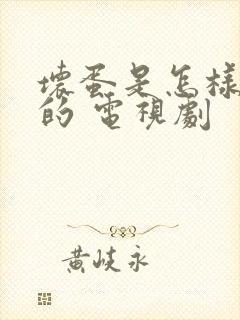 壞蛋是怎樣
的 電視劇
黃岐永